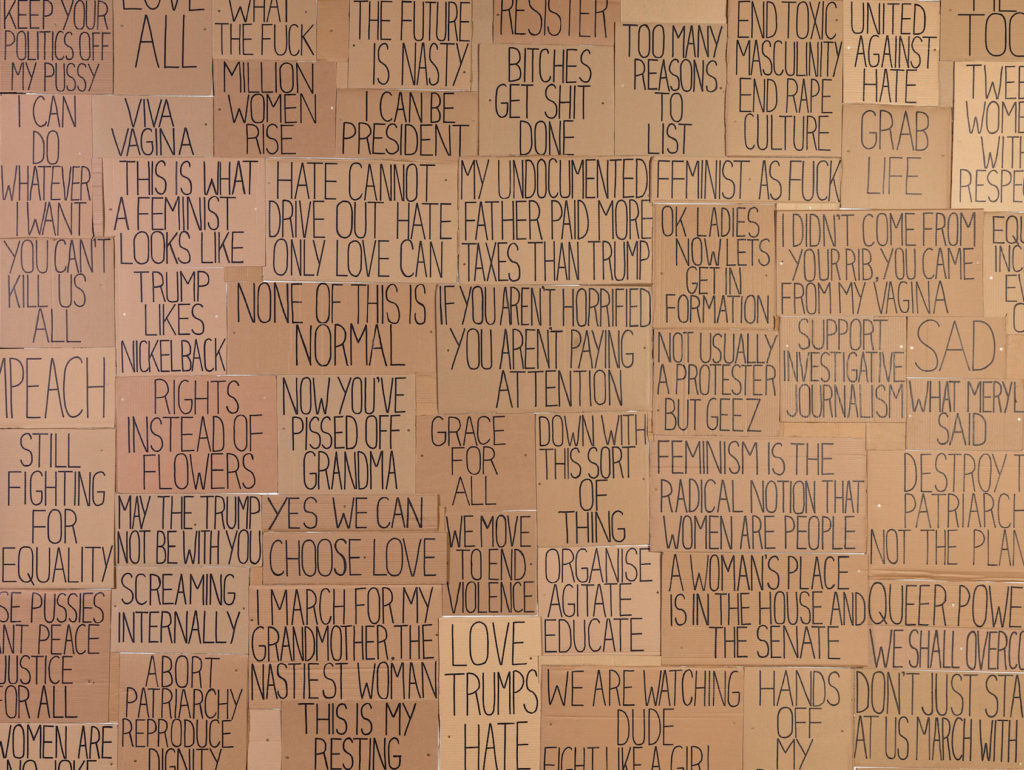 KEEP YOUR
POLITICS OFF
MY PUSSY
LOVE
ALL
WHAT
THE FUCK
THE FUTURE
IS NASTY
RESISTER
TOO MANY
REASONS
TO
LIST
END TOXIC
MASCULINITY
END RAPE
CULTURE
UNITED
AGAINST
HATE
TOO
I CAN
DO
WHATEVER
I WANT
VIVA
VAGINA
MILLION
WOMEN
RISE
I CAN BE
PRESIDENT
BITCHES
GET SHIT
DONE
GRAB
LIFE
WOME
WITH
RESPE
THIS IS WHAT
A FEMINIST
LOOKS LIKE
HATE CANNOT
DRIVE OUT HATE
ONLY LOVE CAN
MY UNDOCUMENTED
FATHER PAID MORE
TAXES THAN TRUMP
FEMINIST AS FUCK
OK LADIES
NOW LETS
GET IN
FORMATION
I DIDN'T COME FROM
YOUR RIB, YOU CAME
FROM MY VAGINA
YOU CAN'T
KILL US
ALL
TRUMP
LIKES
NICKELBACK
NONE OF THIS IS
NORMAL
IF YOU AREN'T HORRIFIED
YOU AREN'T PAYING
ATTENTION
NOT USUALLY
A PROTESTER
BUT GEEZ
SUPPORT
INVESTIGATIVE
JOURNALISM
SAD
WHAT MERYL
SAID
MPEACH
RIGHTS
INSTEAD OF
FLOWERS
NOW YOU'VE
PISSED OFF
GRANDMA
GRACE
FOR
ALL
DOWN WITH
THIS SORT
OF
THING
FEMINISM IS THE
RADICAL NOTION THAT
WOMEN ARE PEOPLE
DESTROY T
PATRIARCH
NOT THE PLAN
STILL
FIGHTING
FOR
EQUALITY
MAY THE TRUMP
NOT BE WITH YOU
YES WE CAN
CHOOSE LOVE
WE MOVE
TO END
VIOLENCE
ORGANISE
AGITATE
EDUCATE
A WOMAN'S PLACE
IS IN THE HOUSE AND
THE SENATE
QUEER POWE
WE SHALL OVERCO
SE PUSSIES
ANT PEACE
JUSTICE
FOR ALL
SCREAMING
INTERNALLY
I MARCH FOR MY
GRANDMOTHER. THE
NASTIEST WOMAN
LOVE
TRUMPS
HATE
WE ARE WATCHING
DUDE
FIGHT LIKE A GIRL
HANDS
OFF
MY
DON'T JUST STA
AT US MARCH WITH
ABORT
PATRIARCHY
REPRODUCE
DIGNITY
THIS IS MY
RESTING
WOMEN ARE
NO JOKE